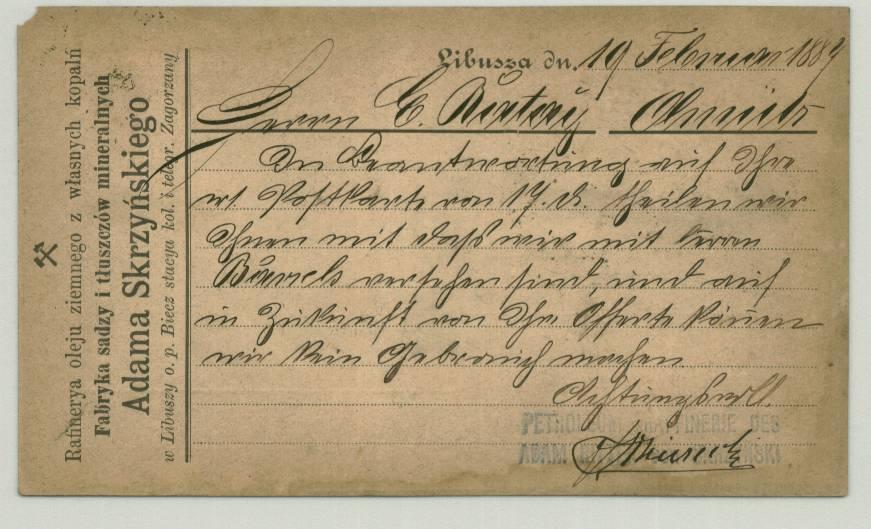 Rafinerya oleju ziemnego z własnych kopalń
Fabryka sadzy i tłuszczów mineralnych
Adama Skrzyńskiego
w Libuszy o. p. Biecz stacya kol. i telegr. Zagorzany
Libusza dn. 19 Februar 1889
Herrn C. Ratay Olmütz
In Beantwortung auf Ihre
wt. Postkarte von 17. d. theilen wir
Ihnen mit daß wir mit
Barrels versehen sind, und auf
in Zukunft von Ihr Offerte können
wir kein Gebrauch machen
Achtungsvoll
PETROLEUM RAFFINERIE DES
ADAM SKRZYNSKI